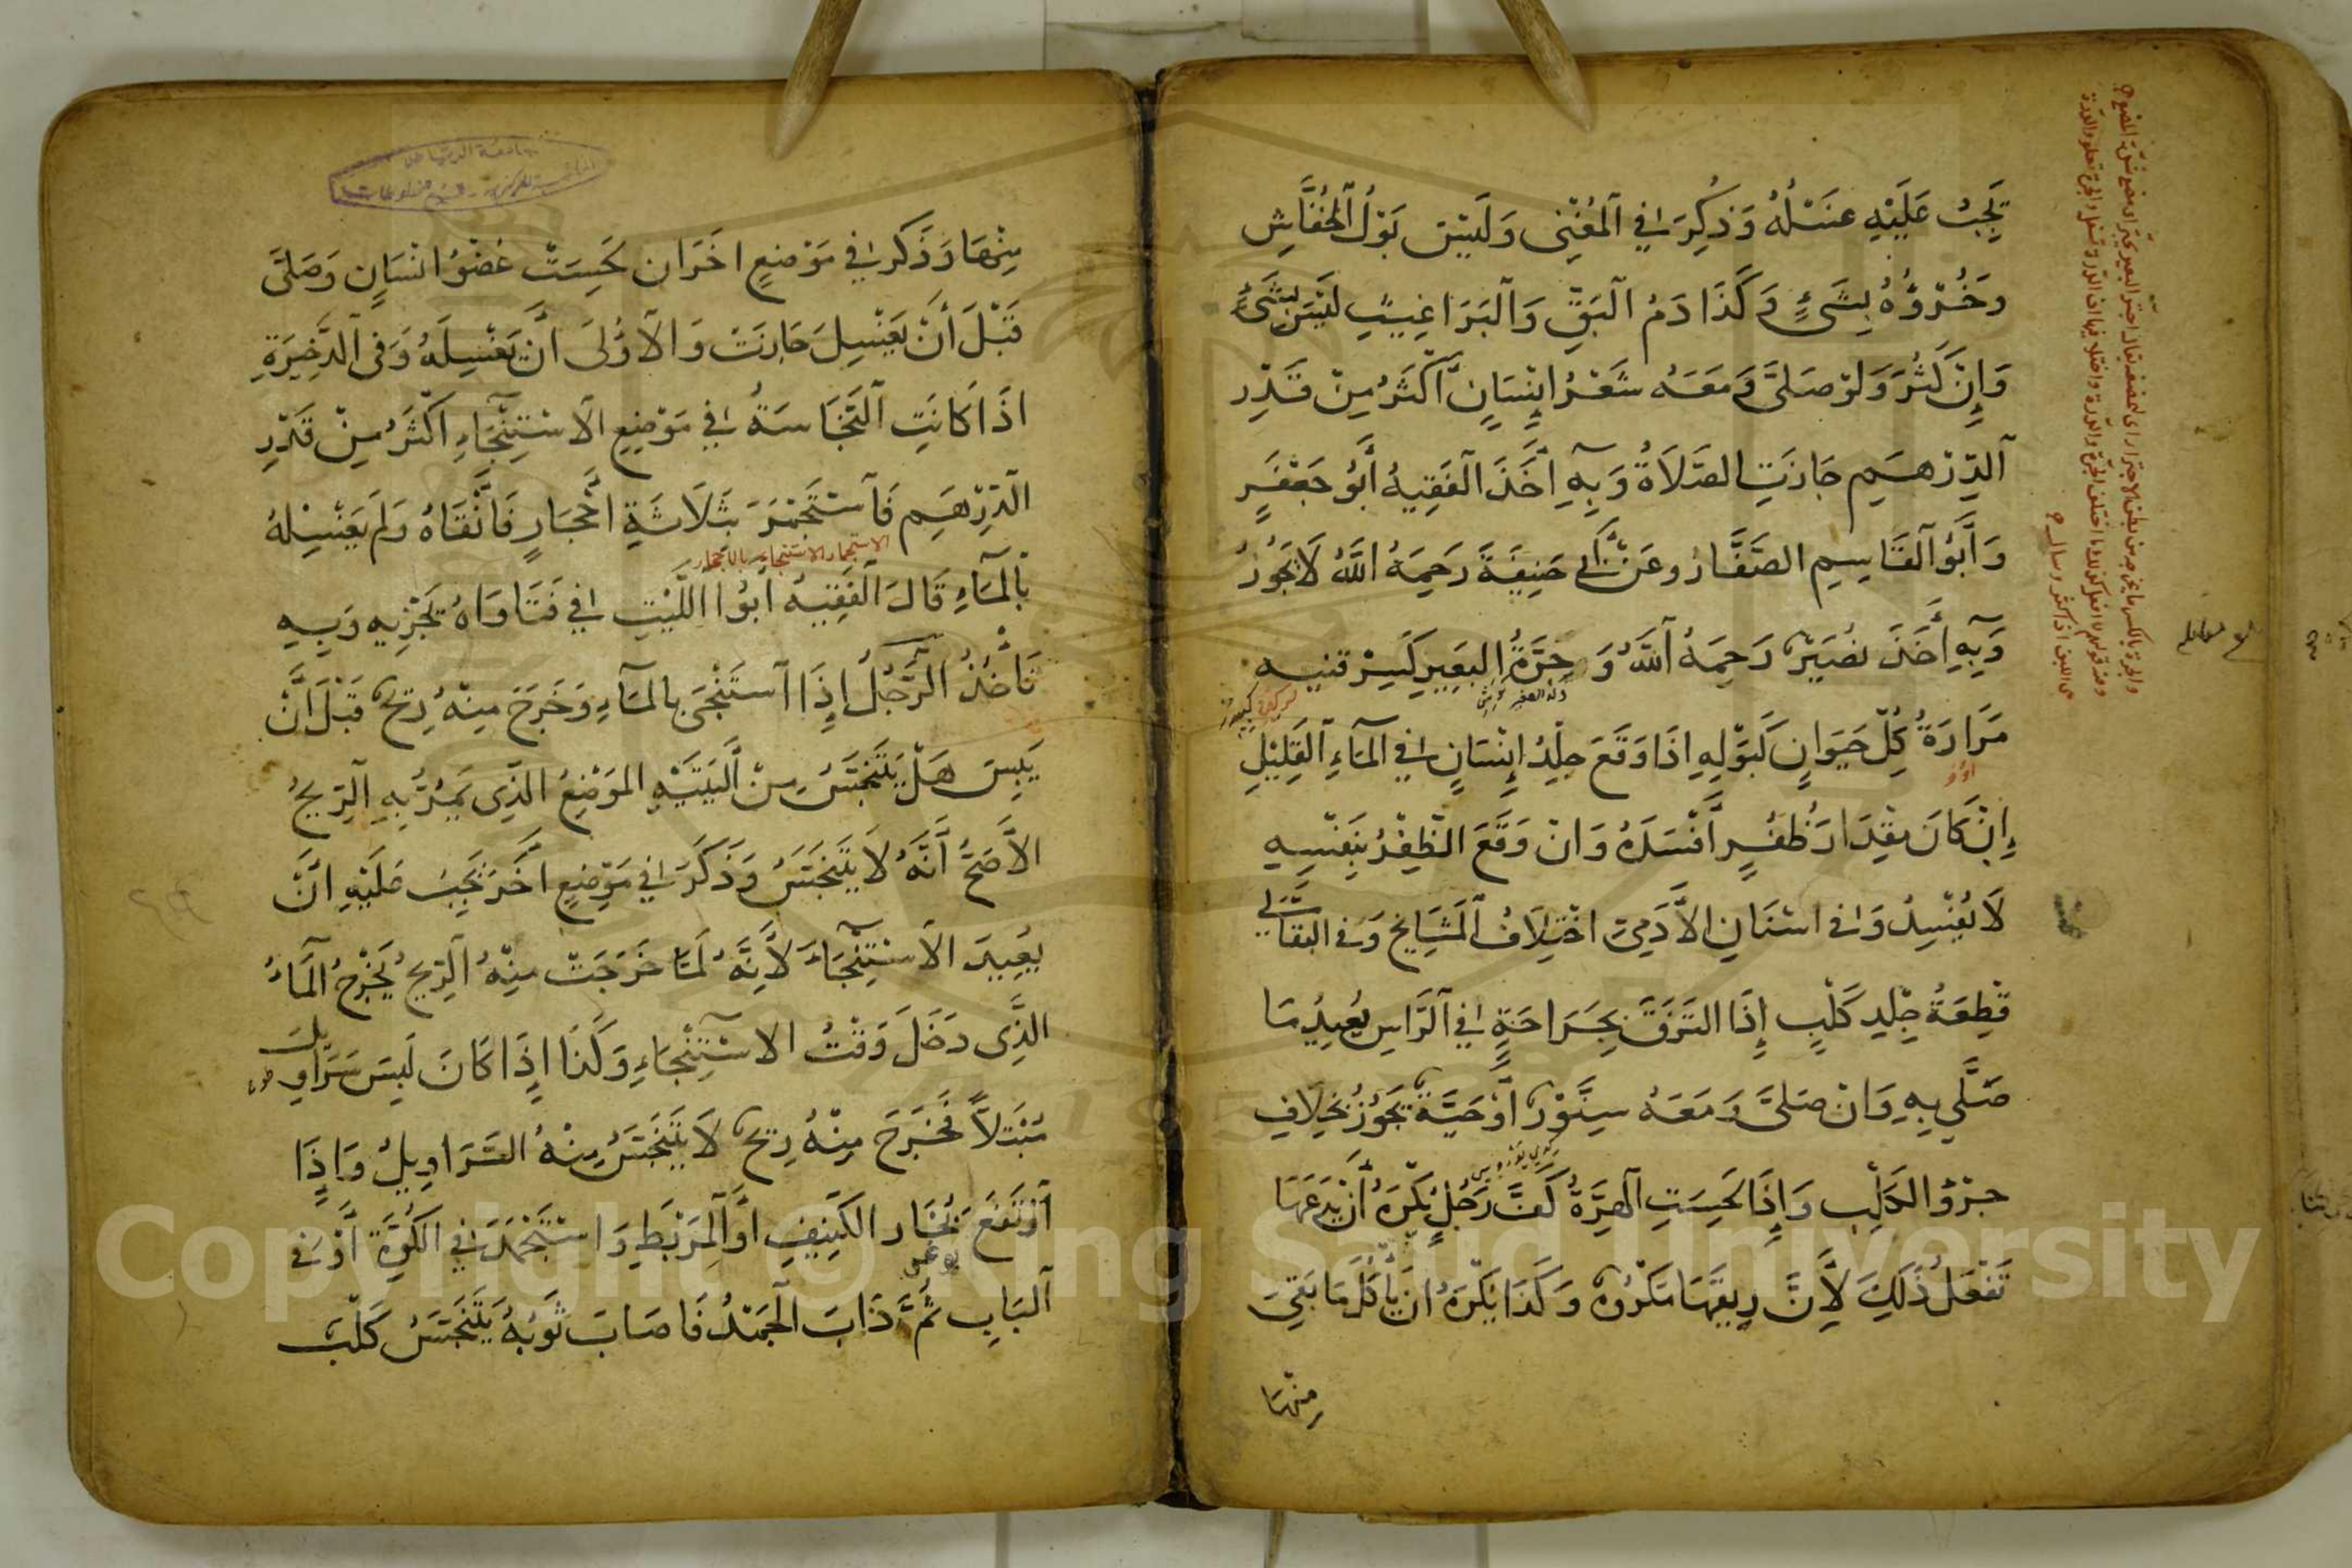 يَجِبُ عَلَيْهِ غَسْلُهُ وَذُكِرَ فِي الْمُغْنِي وَلَيْسَ بَوْلُ الْخُفَّاشِ
وَخُرْؤُهُ بِشَيْءٍ وَكَذَا دَمُ الْبَقِّ وَالْبَرَاغِيثِ لَيْسَ بِشَيْءٍ
وَإِنْ كَثُرَ وَلَوْ صَلَّى وَمَعَهُ شَعْرُ إِنْسَانٍ أَكْثَرُ مِنْ قَدْرِ
الدِّرْهَمِ جَازَتِ الصَّلَاةُ وَبِهِ أَخَذَ الْفَقِيهُ أَبُو جَعْفَرٍ
وَأَبُو الْقَاسِمِ الصَّفَّارُ وعَنْ أَبِي حَنِيفَةَ رَحِمَهُ اللَّهُ لَا يَجُوزُ
وَبِهِ أَخَذَ نُصَيْرٌ رَحِمَهُ اللَّهُ وَجِرَّةُ الْبَعِيرِ كَسِرْقِنِيهِ
مَرَارَةُ كُلِّ حَيَوَانٍ كَبَوْلِهِ اذَا وَقَعَ جِلْدُ إِنْسَانٍ فِي الْمَاءِ الْقَلِيلِ
إِنْ كَانَ مِقْدَارَ ظُفُرٍ أَفْسَدَهُ وَانْ وَقَعَ الظُّفْرُ بِنَفْسِهِ
لَا يُفْسِدُ وَفِي اسْنَانِ الْآدَمِيِّ اخْتِلَافُ الْمَشَايِخِ وَفِي الْبَقَّالِي
قِطْعَةُ جِلْدِ كَلْبٍ إِذَا الْتَزَقَ بِجَرَاحَةٍ فِي الرَّأْسِ يُعِيدُ مَا
صَلَّى بِهِ وَانْ صَلَّى وَمَعَهُ سِنَّوْرٌ أَوْ حَيَّةٌ يَجُوزُ بِخِلَافِ
جِرْوِ الْكَلْبِ وَإِذَا لَحِسَتِ الْهِرَّةُ كَفَّ رَجُلٍ يُكْرَهُ أَنْ يَدَعَهَا
تَفْعَلُ ذَلِكَ لِأَنَّ رِيقَهَا مَكْرُوهٌ وَكَذَا يُكْرَهُ انْ يَأْكُلَ مَا بَقِيَ
مِنْهَا
مِنْهَا وَذَكَرَ فِي مَوْضِعٍ اخَرَ ان لَحِسَتْ عُضْوَ انْسَانٍ وَصَلَّى
قَبْلَ أَنْ يَغْسِلَ جَازَتْ وَالْأَوْلَى أَنْ يَغْسِلَهُ وَفِي الذَّخِيرَةِ
اذَا كَانَتِ النَّجَاسَةُ فِي مَوْضِعِ الِاسْتِنْجَاءِ اكْثَرُ مِنْ قَدْرِ
الدِّرْهَمِ فَاسْتَجْمَرَ بِثَلَاثَةِ أَحْجَارٍ فَأَنْقَاهُ وَلَمْ يَغْسِلْهُ
الاستجمار الاستنجاء بالاحجار
بِالْمَاءِ قَالَ الْفَقِيهُ أَبُوا اللَّيْثِ فِي فَتَاوَاهُ يُجْزِيهِ وَبِهِ
نَأْخُذُ الرَّجُلُ إِذَا اسْتَنْجَى بِالْمَاءِ وَخَرَجَ مِنْهُ رِيحٌ قَبْلَ أَنْ
يَيْبَسَ هَلْ يَتَنَجَّسُ مِنْ أَلْيَتَيْهِ الْمَوْضِعُ الَّذِي يَمُرُّ بِهِ الرِّيحُ
الْأَصَحُّ أَنَّهُ لَا يَتَنَجَّسُ وَذَكَرَ فِي مَوْضِعٍ اخَرَ يَجِبُ عَلَيْهِ انْ
يُعِيدَ الِاسْتِنْجَاءَ لِأَنَّهُ لَمَّا خَرَجَتْ مِنْهُ الرِّيحُ يَخْرُجُ الْمَاءُ
الَّذِي دَخَلَ وَقْتَ الِاسْتِنْجَاءِ وَكَذَا اذَا كَانَ لَبِسَ سَرَاوِيلَ
مُبْتَلًّا فَخَرَجَ مِنْهُ رِيحٌ لَا يَتَنَجَّسُ مِنْهُ السَّرَاوِيلُ وَاذَا
ارْتَفَعَ بُخَارُ الْكَنِيفِ أَوِ الْمَرْبَطِ وَاسْتَجْمَدَ فِي الْكُوَّةِ أَوْ فِي
الْبَابِ ثُمَّ ذَابَ الْجَمَدُ فَاصَابَ ثَوْبَهُ يَتَنَجَّسُ كَلْبٌ
Copyright © King Saud University